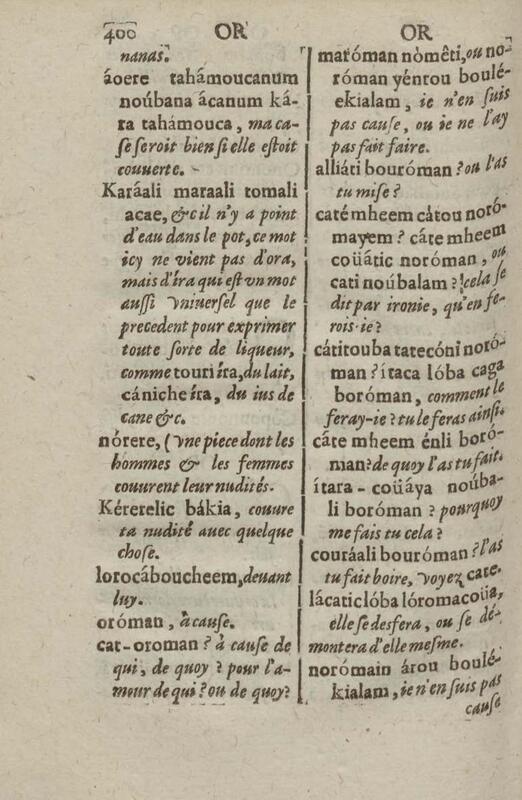 400 OR OR
nanas.
áoere tahámoucanum
noúbana ácanum ká-
ra tahámouca, ma ca-
se seroit bien si elle estoit
couuerte.
Karáali maraali tomali
acae, & c il n'y a point
d'eau dans le pot, ce mot
icy ne vient pas d'ora,
mais d'íra qui est vn mot
aussi vniuersel que le
precedent pour exprimer
toute sorte de liqueur,
comme touri íra, du lait,
cániche íra, du ius de
cane &c.
nórere, (vne piece dont les
hommes & les femmes
couurent leur nudités.
Kérerelic bákia, couure
ta nudité auec quelque
chose.
lorocáboucheem, deuant
luy.
oróman, à cause.
cat-oroman? à cause de
qui, de quoy? pour l'a-
mour de qui? ou de quoy?
maróman nòmêti, ou no-
róman yéntou boulé-
ekialam, ie n'en suis
pas cause, ou ie ne l'ay
pas fait faire.
alliáti bouróman? ou l'as
tu mise?
caté mheem cátou noró-
mayem? cáte mheem
coüátic noróman, ou
cati noúbalam? cela se
dit par ironie, qu'en fe-
rois-ie?
cátitouba tatecóni noró-
man? ítaca lóba caga
boróman, comment le
feray-ie? tu le feras ainsi.
cáte mheem énli boró-
man? de quoy l'as tu fait.
ítara-coüáya noúba-
li boróman? pourquoy
me fais tu cela?
couráali bouróman? l'as
tu fait boire, voyez cate.
lácaticlóba lóromacoüa,
elle se desfera, ou se dé-
montera d'elle mesme.
norómain árou boulé-
kialam, ie n'en suis pas
cause